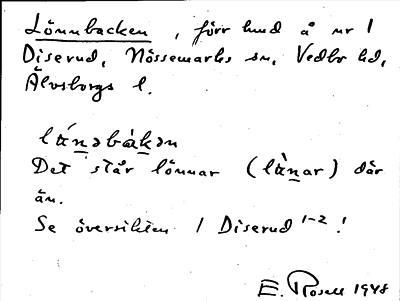 Lönnbacken, förr lund å nr 1
Diserud, Nössemarks sn, Vedbo hd,
Älvsborgs l.
Det står lönnar (lὰnar) där
än.
Se översikten / Diserud 1-2!
E. Rosell 1948